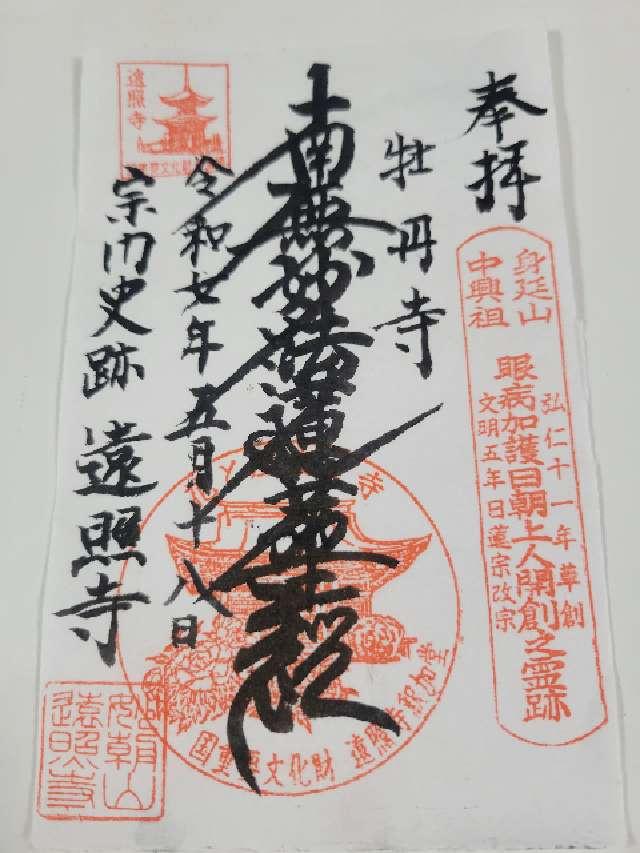 奉拝
身延山
中興祖
弘仁十一年草創
眼病加護日朝上人開創之霊跡
文明五年日蓮宗改宗
牡丹寺
南無妙法蓮華経
令和七年五月十八日
宗門史跡 遠照寺
遠照寺
国重要文化財 遠照寺釈迦堂
遠照寺